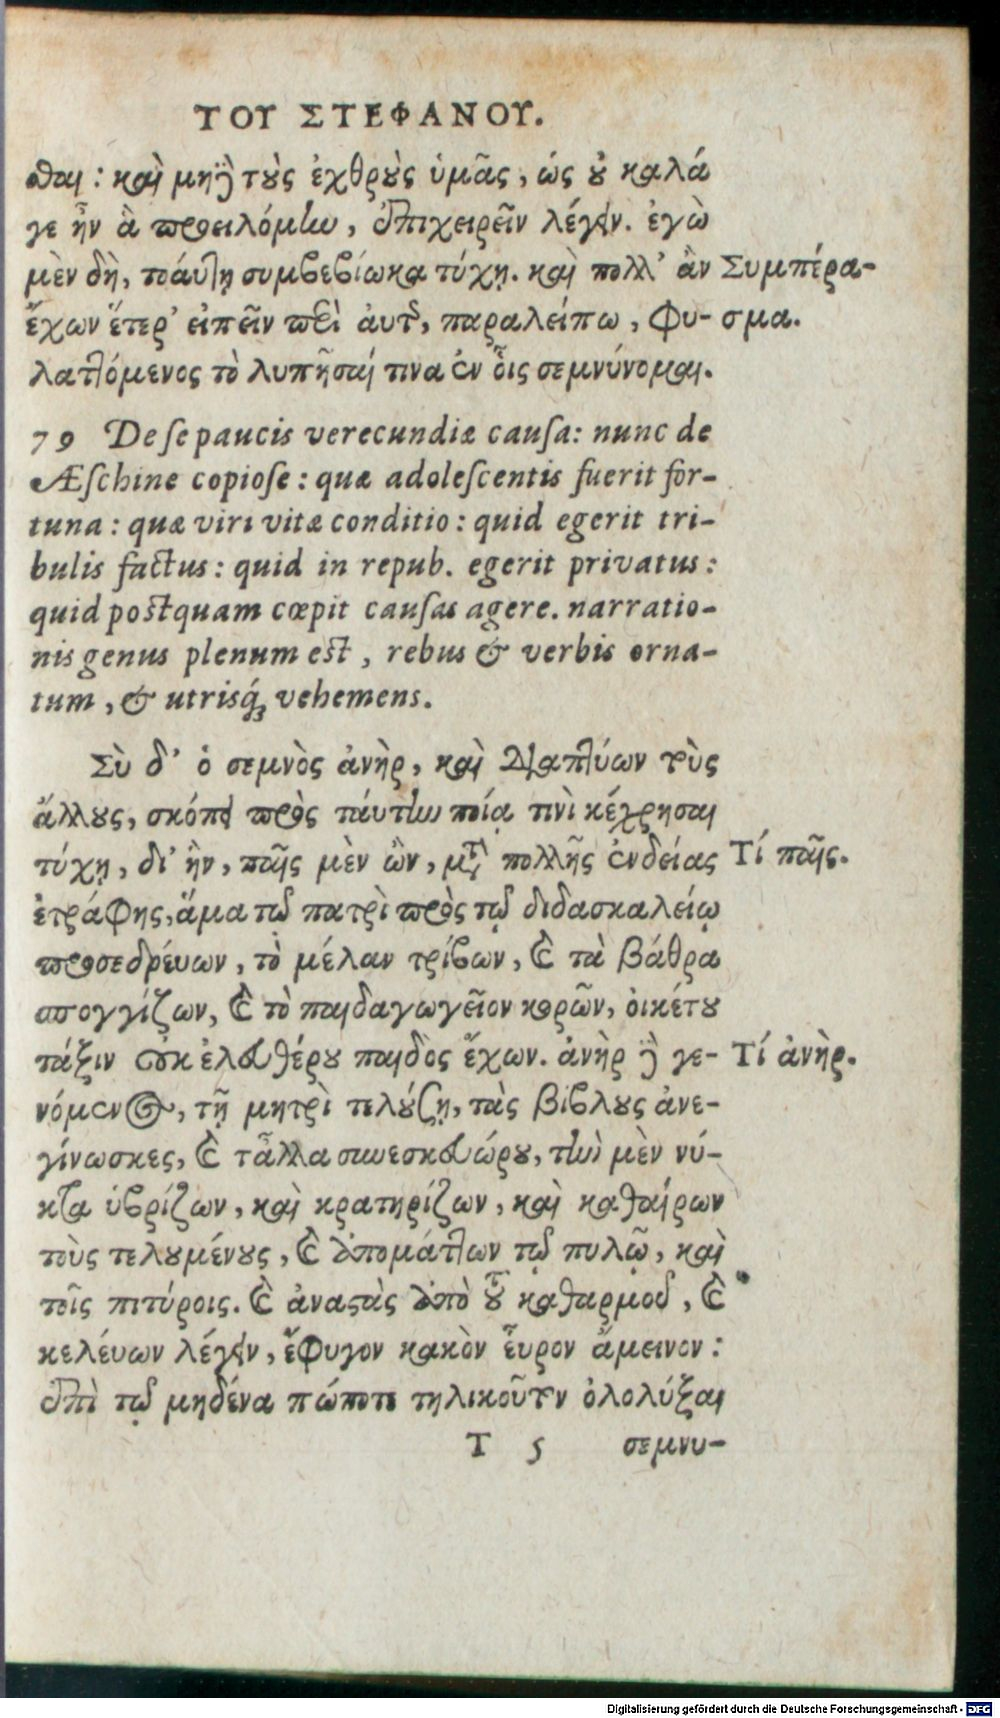 ΤΟΥ ΣΤΕΦΑΝΟΥ.
σθαι: καὶ μηδὲ τοὺς ἐχθροὺς ὑμᾶς, ὡς οὐ καλά
γε ἦν ἃ προειλόμην, ἐπιχειρεῖν λέγειν. ἐγὼ
μὲν δὴ, τοιαύτῃ συμβεβίωκα τύχῃ. καὶ πολλ' ἂν
Συμπέρα-
ἔχων ἕτερ' εἰπεῖν περὶ αὐτῆς, παραλείπω, φυ-
σμα.
λαττόμενος τὸ λυπῆσαί τινα ἐν οἷς σεμνύνομαι.
79 De se paucis verecundiæ causa: nunc de
Æschine copiose: quæ adolescentis fuerit for-
tuna: quæ viri vitæ conditio: quid egerit tri-
bulis factus: quid in repub. egerit privatus:
quid postquam cœpit causas agere. narratio-
nis genus plenum est, rebus & verbis orna-
tum, & utrisq́; vehemens.
Σὺ δ' ὁ σεμνὸς ἀνὴρ, καὶ διαπτύων τοὺς
ἄλλους, σκόπει πρὸς ταύτην ποίᾳ τινὶ κέχρησαι
τύχῃ, δι' ἣν, παῖς μὲν ὢν, μετὰ πολλῆς ἐνδείας
Τί παῖς.
ἐτράφης, ἅμα τῷ πατρὶ πρὸς τῷ διδασκαλείῳ
προσεδρεύων, τὸ μέλαν τρίβων, καὶ τὰ βάθρα
σπογγίζων, καὶ τὸ παιδαγωγεῖον κορῶν, οἰκέτου
τάξιν οὐκ ἐλευθέρου παιδὸς ἔχων. ἀνὴρ δὲ γε-
Τί ἀνὴρ.
νόμενος, τῇ μητρὶ τελούσῃ, τὰς βίβλους ἀνε-
γίνωσκες, καὶ τἆλλα συνεσκευώρου, τὴν μὲν νύ-
κτα νεβρίζων, καὶ κρατηρίζων, καὶ καθαίρων
τοὺς τελουμένους, καὶ ἀπομάττων τῷ πηλῷ, καὶ
τοῖς πιτύροις. καὶ ἀναστὰς ἀπὸ τοῦ καθαρμοῦ, καὶ
κελεύων λέγειν, ἔφυγον κακὸν εὗρον ἄμεινον:
ἐπὶ τῷ μηδένα πώποτε τηλικοῦτον ὀλολύξαι
Τ 5 σεμνυ-
Digitalisierung gefördert durch die Deutsche Forschungsgemeinschaft - DFG